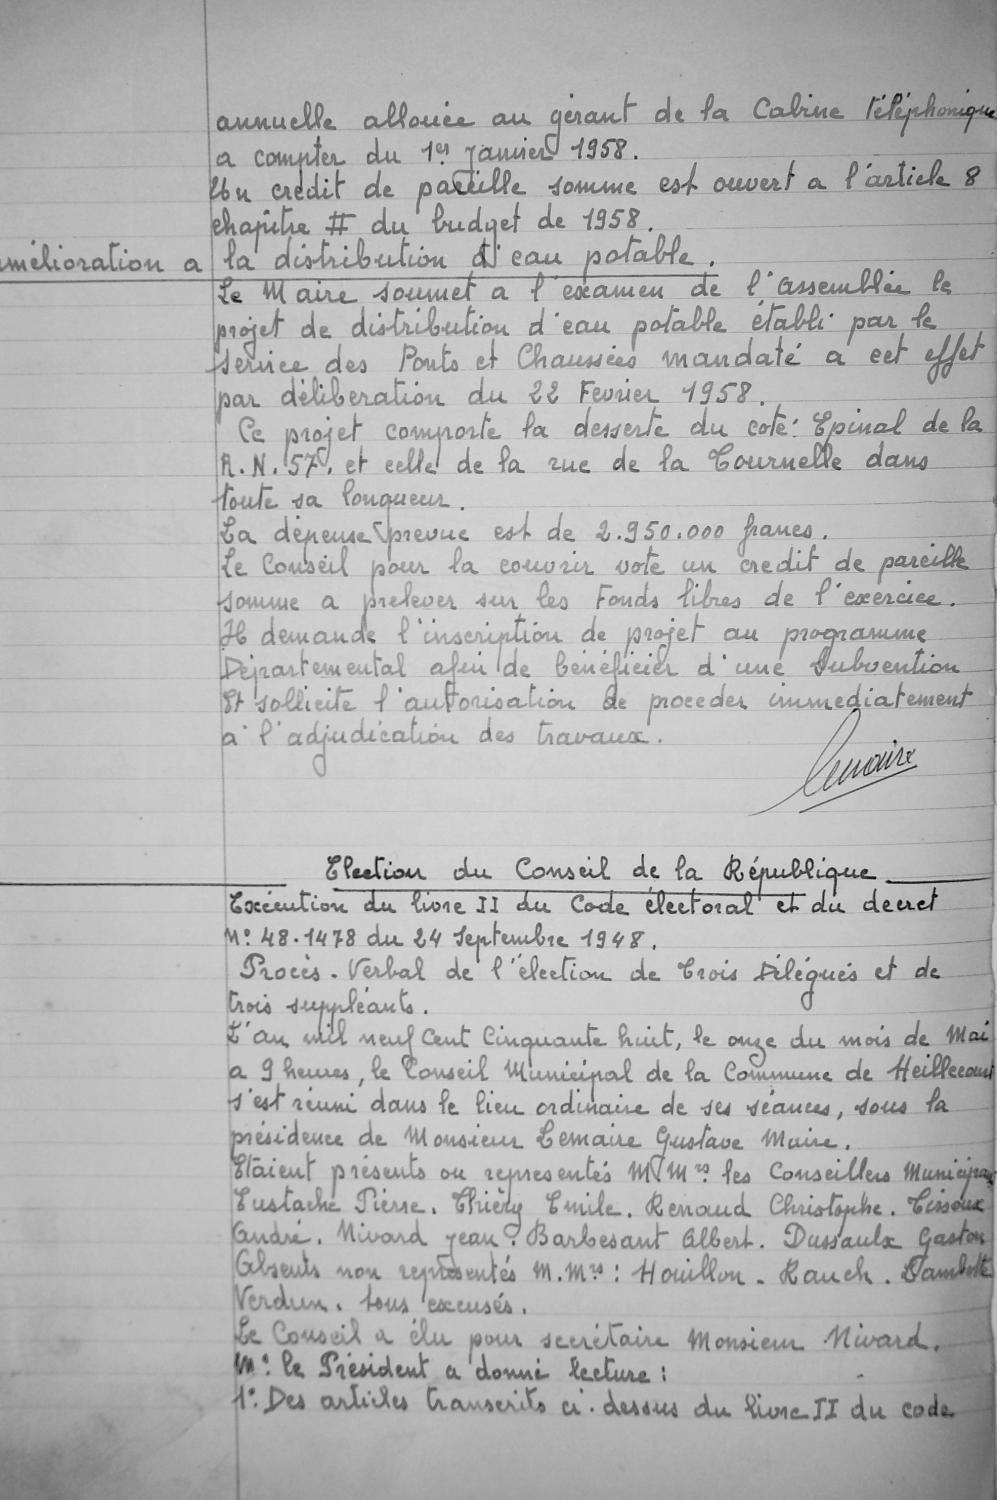 annuelle allouée au gérant de la Cabine Téléphonique
a compter du 1er Janvier 1958.
Un credit de pareille somme est ouvert a l'article 8
chapitre II du budget de 1958.
amélioration a la distribution d'eau potable.
Le Maire soumet a l'examen de l'assemblée le
projet de distribution d'eau potable établi par le
service des Ponts et Chaussées mandaté a cet effet
par déliberation du 22 Fevrier 1958.
Ce projet comporte la desserte du coté: Epinal de la
R.N. 57, et celle de la rue de la Tournelle dans
toute sa longueur.
La dépense prevue est de 2.950.000 francs.
Le Conseil pour la couvrir vote un credit de pareille
somme a prelever sur les Fonds libres de l'exercice.
Il demande l'inscription de projet au programme
Départemental afin de bénéficier d'une Subvention
Et sollicite l'autorisation de proceder immediatement
a l'adjudication des travaux.
Lemaire
Election du Conseil de la République
Exécution du livre II du Code électoral et du decret
N: 48.1478 du 24 Septembre 1948.
Procès-Verbal de l'élection de Trois Délégués et de
trois suppléants.
L'an mil neuf Cent Cinquante huit, le onze du mois de Mai
a 9 heures, le Conseil Municipal de la Commune de Heillecourt
s'est réuni dans le lieu ordinaire de ses séances, sous la
présidence de Monsieur Lemaire Gustave Maire.
Etaient présents ou representés M.Mrs les Conseillers Municipaux
Eustache Pierre. Thiéry Emile. Renaud Christophe. Tissoux
André. Nivard Jean. Barbesant Albert. Dussaulx Gaston
Absents non représentés M.Mrs: Houillon - Rauch. Dambotte
Verdun. tous excusés.
Le Conseil a élu pour secrétaire Monsieur Nivard.
M: le Président a donné lecture:
1: Des articles transcrits ci-dessus du livre II du code